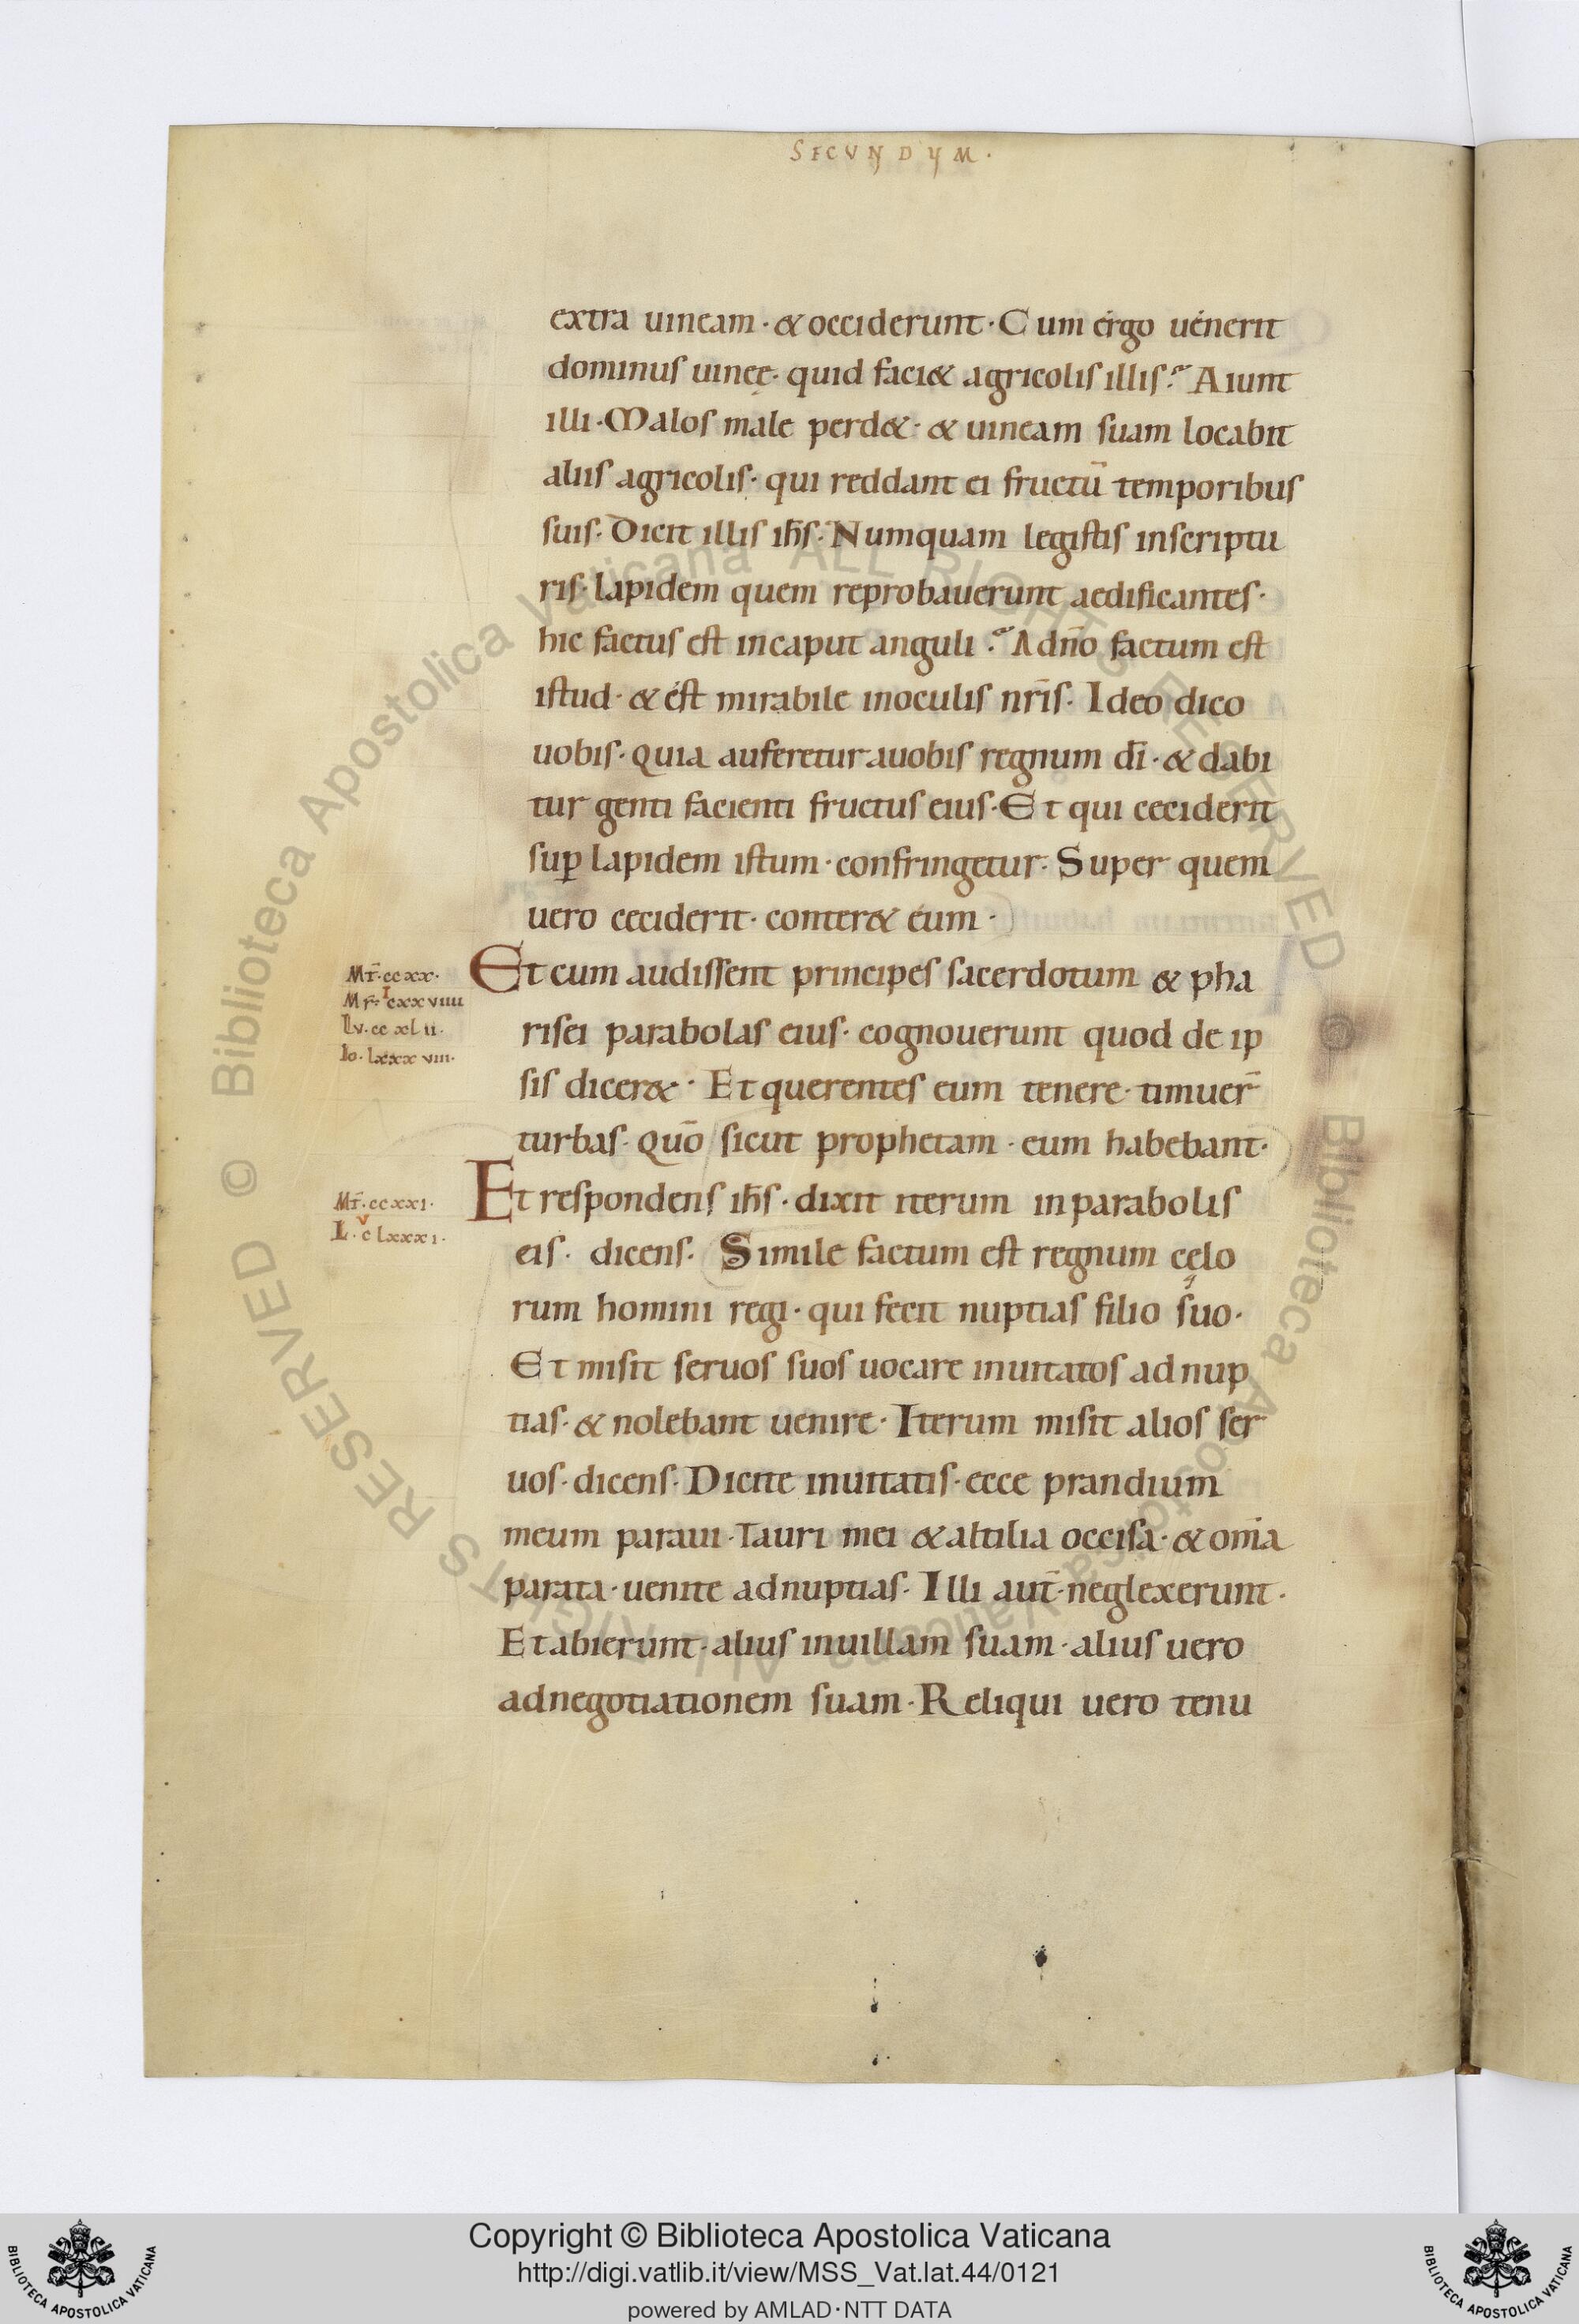 SECUNDUM·
extra uineam·& occiderunt·Cum érgo uénerit
dominus uineę·quid faci& agricolis illis? Aiunt
illi·Malos male perd&·& uineam suam locabit
aliis agricolis·qui reddant ei fructū temporibus
suis·Dicit illis ih̄s·Numquam legistis inscriptu
ris·lapidem quem reprobauerunt aedificantes·
hic factus est incaput anguli? Adño factum est
istud·& ést mirabile inoculis nr̄is·Ideo dico
uobis·quia auferetur auobis regnum dī·& dabi
tur genti facienti fructus eius·Et qui ceciderit
suꝑ lapidem istum·confringetur·Super quem
uero ceciderit·conter& éum·
Mt̄·ccxx·
Mr̄·cxxviiii
I
Lv·ccxlii·
Io·lxxxviii·
Et cum audissent principes sacerdotum & pha
risei parabolas eius·cognouerunt quod de ip
sis dicer&·Et querentes eum tenere·timuer̄
turbas·Quō sicut prophetam·eum habebant·
Mt̄·ccxxi·
V
L·clxxxi·
Et respondens ih̄s·dixit iterum inparabolis
eis·dicens·Simile factum est regnum cęlo
rum homini regi·qui fecit nuptias filio suo·
Et misit seruos suos uocare inuitatos adnup
tias·& nolebant uenire·Iterum misit alios ser
uos·dicens·Dicite inuitatis·ecce prandium
meum paraui·Tauri mei & altilia occisa·& om̄a
parata·uenite adnuptias·Illi aut̄ neglexerunt·
Et abierunt·alius inuillam suam·alius uero
adnegotiationem suam·Reliqui uero tenu
© Biblioteca Apostolica Vaticana ALL RIGHTS RESERVED
© Biblioteca Apostolica Vaticana ALL RIGHTS RESERVED
BIBLIOTECA APOSTOLICA VATICANA
Copyright © Biblioteca Apostolica Vaticana
http://digi.vatlib.it/view/MSS_Vat.lat.44/0121
powered by AMLAD·NTT DATA
BIBLIOTECA APOSTOLICA VATICANA